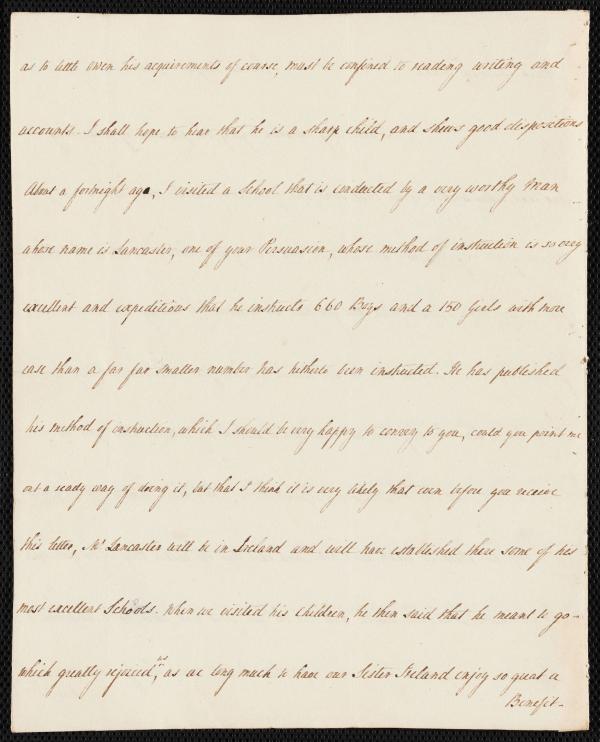 as to little Owen his acquirements of course, must be confined to reading writing and
accounts. I shall hope to hear that he is a sharp child, and shews good dispositions
About a fortnight ago, I visited a School that is conducted by a very worthy Man
whose name is Lancaster, one of your Persuasion, whose method of instruction is so very
excellent and expeditious that he instructs 660 Boys and a 150 Girls with more
ease than a far far smaller number has hitherto been instructed. He has published
his method of instruction, which I should be very happy to convey to you, could you point me
out a ready way of doing it, but that I think it is very likely that even before you receive
this letter, Mr Lancaster will be in Ireland and will have established there some of his
most excellent Schools. When we visited his Children, he then said that he meant to go-
which greatly rejoiced us, as we long much to have our Sister Ireland enjoy so great a
Benefit-